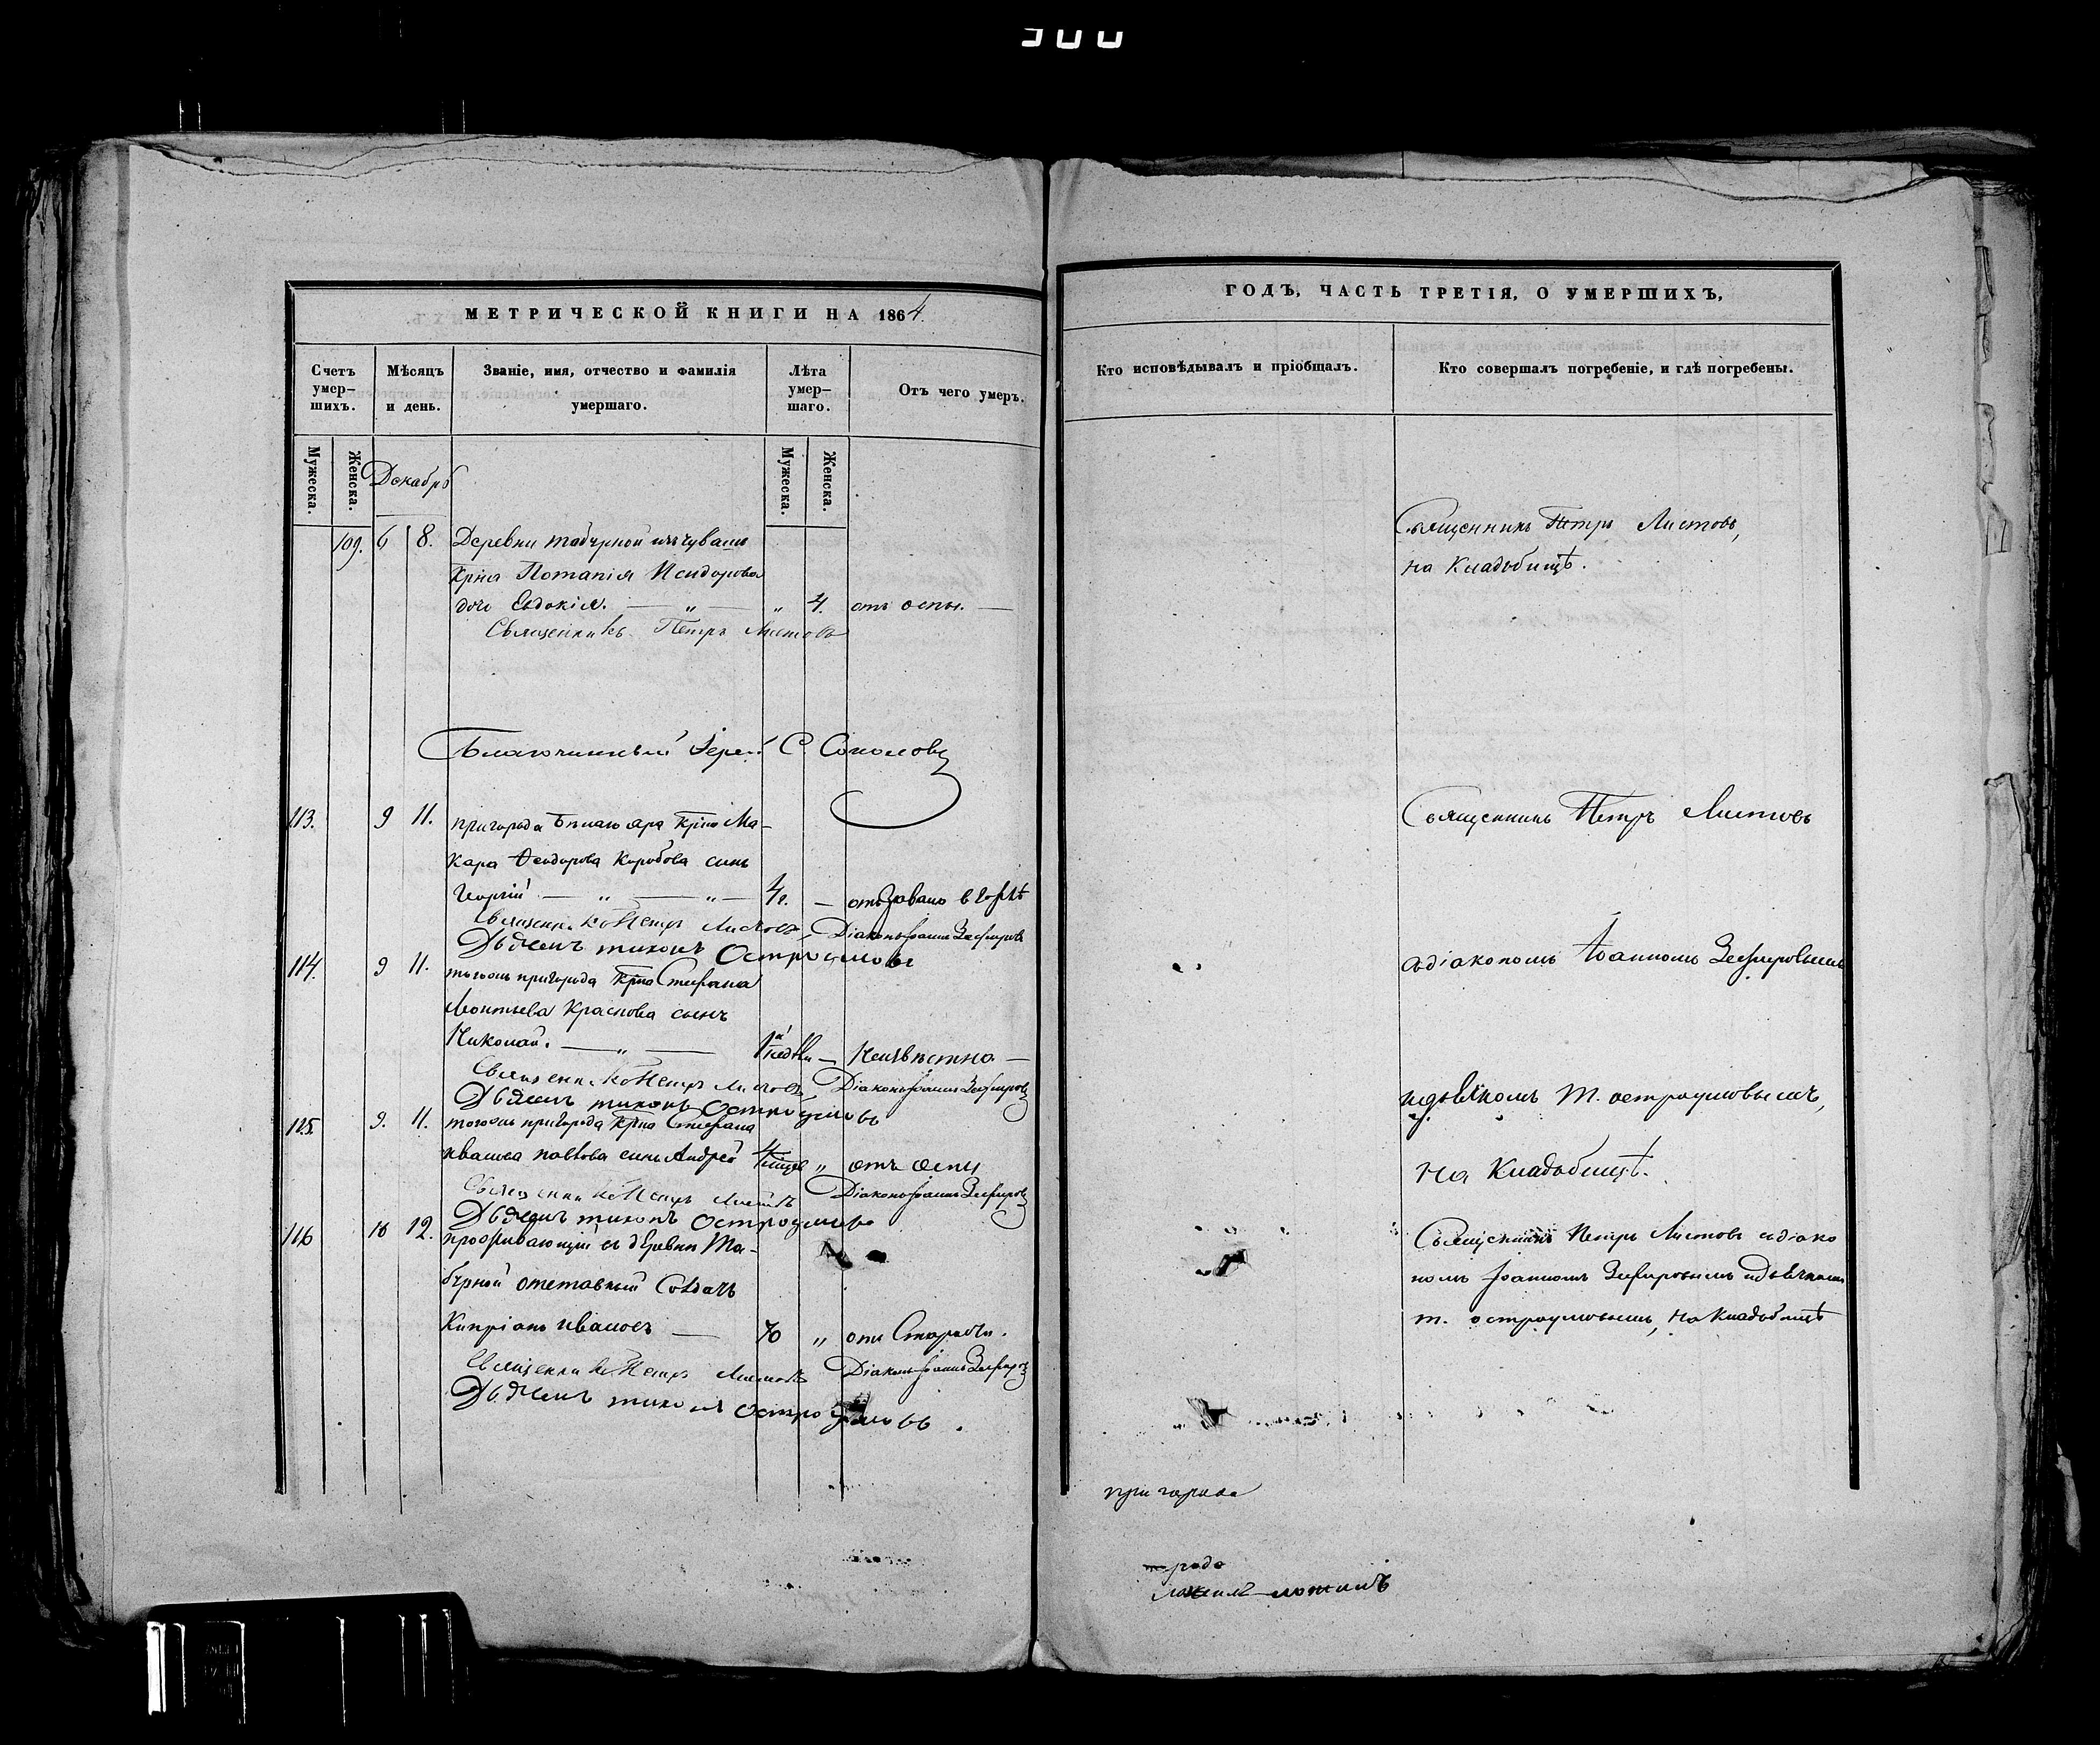 300
МЕТРИЧЕСКОЙ КНИГИ НА 1864
Счетъ умер-шихъ.
Мѣсяцъ и день.
Званіе, имя, отчество и фамилія умершаго.
Лѣта умер-шаго.
Отъ чего умеръ.
Мужеска.
Женска.
Мужеска.
Женска.
Декабрь
109. 6 8. Деревни Табурной изъ чувашъ
Крна Потапія Исидорова
дочь Евдокія. — „ — „ 4. отъ оспы. —
Священникъ Петръ Листовъ
Благочинный Іерей С. Соколовъ
113. 9 11. пригорода Бѣлаго яра Крна Ма-
кара Ѳеодорова Коробова сынъ
Георгій — „ — „ — 4 г. —
Священникъ Петръ Листовъ, Діаконъ Іоаннъ Зефировъ
Дьячекъ тихонъ Остроумовъ
114. 9 11. тогожъ пригорода Крна Стефана
Леонтьева Краснова сынъ
Николай. — „ — недѣли — Неизвѣстно —
Священникъ Петръ Листовъ, Діаконъ Іоаннъ Зефировъ
Дьячекъ тихонъ Остроумовъ
115. 9. 11. тогожъ пригорода Крна Стефана
Сынъ Андрей „ отъ оспы
Священникъ Петръ Листовъ Діаконъ Іоаннъ Зефировъ
Дьячекъ тихонъ Остроумовъ
116 10 12. проживающій въ дѣревни Та-
бурной отставный Солдатъ
Кипріанъ Ивановъ — 70 „ отъ Старости.
Священникъ Петръ Листовъ Діаконъ Іоаннъ Зефировъ
Дьячекъ тихонъ Остроумовъ.
ГОДЪ, ЧАСТЬ ТРЕТІЯ, О УМЕРШИХЪ,
Кто исповѣдывалъ и пріобщалъ.
Кто совершалъ погребеніе, и гдѣ погребены.
Священникъ Петръ Листовъ,
на Кладбищѣ.
Священникъ Петръ Листовъ
съ діакономъ Іоанномъ Зефировымъ
и дьячкомъ Т. остроумовымъ,
на Кладбищѣ.
Священникъ Петръ Листовъ съ діако
номъ Іоанномъ Зефировымъ и дьячкомъ
т. остроумовымъ, на Кладбищѣ
пригорода